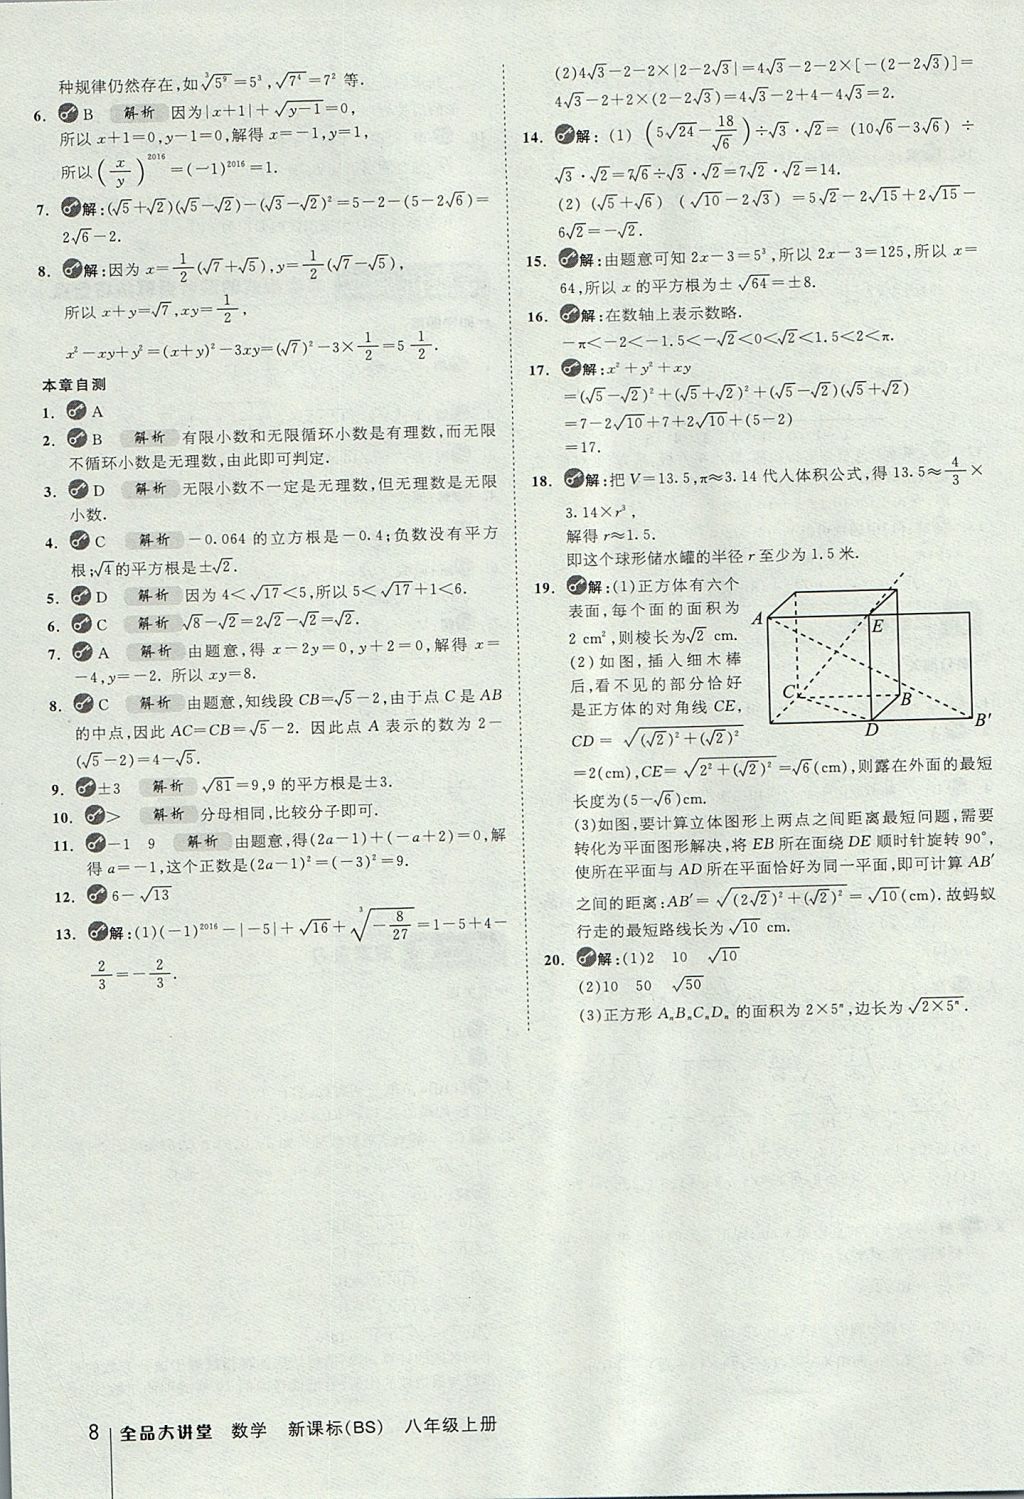 种规律仍然存在,如∛5⁹=5³,√7⁴=7² 等.
6. B 解析 因为|x+1|+√(y-1)=0,
所以 x+1=0,y-1=0,解得 x=-1,y=1,
所以(x/y)²⁰¹⁶=(-1)²⁰¹⁶=1.
7. 解:(√5+√2)(√5-√2)-(√3-√2)²=5-2-(5-2√6)=
2√6-2.
8. 解:因为 x=1/2(√7+√5),y=1/2(√7-√5),
所以 x+y=√7,xy=1/2,
x²-xy+y²=(x+y)²-3xy=(√7)²-3×1/2=5 1/2.
本章自测
1. A
2. B 解析 有限小数和无限循环小数是有理数,而无限
不循环小数是无理数,由此即可判定.
3. D 解析 无限小数不一定是无理数,但无理数是无限
小数.
4. C 解析 -0.064 的立方根是-0.4;负数没有平方
根;√4的平方根是±√2.
5. D 解析 因为 4<√17<5,所以 5<√17+1<6.
6. C 解析 √8-√2=2√2-√2=√2.
7. A 解析 由题意,得 x-2y=0,y+2=0,解得 x=
-4,y=-2. 所以 xy=8.
8. C 解析 由题意,知线段 CB=√5-2,由于点 C 是 AB
的中点,因此 AC=CB=√5-2. 因此点 A 表示的数为 2-
(√5-2)=4-√5.
9. ±3 解析 √81=9,9 的平方根是±3.
10. > 解析 分母相同,比较分子即可.
11. -1 9 解析 由题意,得(2a-1)+(-a+2)=0,解
得 a=-1,这个正数是(2a-1)²=(-3)²=9.
12. 6-√13
13. 解:(1)(-1)²⁰¹⁶-|-5|+√16+∛(-8/27)=1-5+4-
2/3=-2/3.
(2)4√3-2-2×|2-2√3|=4√3-2-2×[-(2-2√3)]=
4√3-2+2×(2-2√3)=4√3-2+4-4√3=2.
14. 解:(1)(5√24-18/√6)÷√3·√2=(10√6-3√6)÷
√3·√2=7√6÷√3·√2=7√2×√2=14.
(2)(√5+√6)(√10-2√3)=5√2-2√15+2√15-
6√2=-√2.
15. 解:由题意可知 2x-3=5³,所以 2x-3=125,所以 x=
64,所以 x 的平方根为±√64=±8.
16. 解:在数轴上表示数略.
-π<-2<-1.5<-√2<0<√2<1.5<2<π.
17. 解:x²+y²+xy
=(√5-√2)²+(√5+√2)²+(√5-√2)(√5+√2)
=7-2√10+7+2√10+(5-2)
=17.
18. 解:把 V=13.5,π≈3.14 代人体积公式,得 13.5≈4/3×
3.14×r³,
解得 r≈1.5.
即这个球形储水罐的半径 r 至少为 1.5 米.
19. 解:(1)正方体有六个
表面,每个面的面积为
2 cm²,则棱长为√2 cm.
(2)如图,插入细木棒
后,看不见的部分恰好
是正方体的对角线 CE,
CD=√((√2)²+(√2)²)
=2(cm),CE=√(2²+(√2)²)=√6(cm),则露在外面的最短
长度为(5-√6)cm.
(3)如图,要计算立体图形上两点之间距离最短问题,需要
转化为平面图形解决,将 EB 所在面绕 DE 顺时针旋转 90°,
使所在平面与 AD 所在平面恰好为同一平面,即可计算 AB′
之间的距离:AB′=√((2√2)²+(√2)²)=√10(cm).故蚂蚁
行走的最短路线长为√10 cm.
A
E
C
B
D
B′
20. 解:(1)2 10 √10
(2)10 50 √50
(3)正方形 AₙBₙCₙDₙ 的面积为 2×5ⁿ,边长为√(2×5ⁿ).
8 全品大讲堂 数学 新课标(BS) 八年级上册